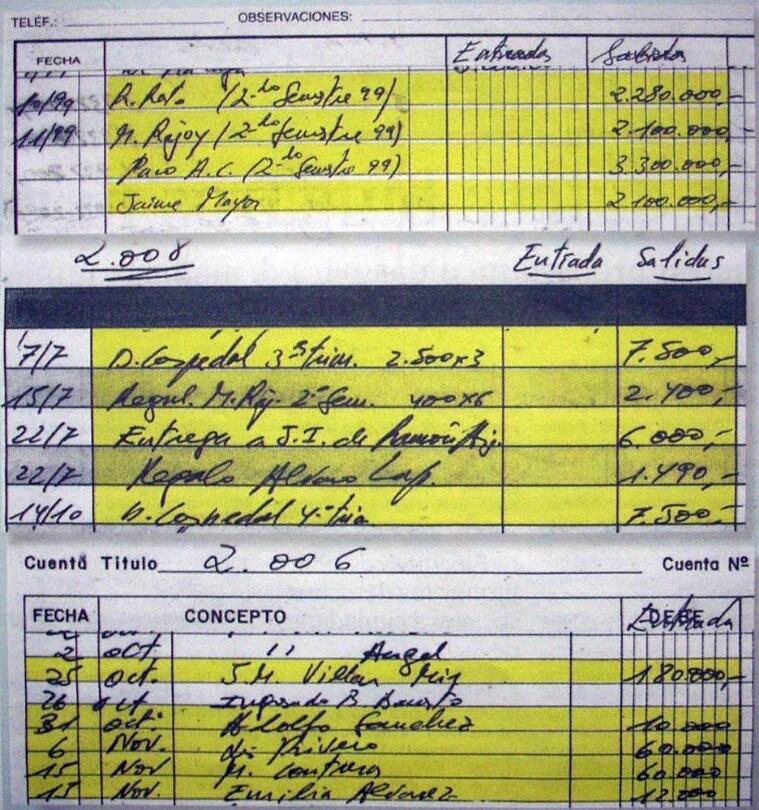 TELÉF.: OBSERVACIONES:
FECHA Entradas Salidas
10/99 R. Rato (2-do Semestre 99) 2.280.000,-
11/99 M. Rajoy (2-do Semestre 99) 2.100.000,-
Paco A.C. (2-do Semestre 99) 3.300.000,-
Jaime Mayor 2.100.000,-
2.008 Entrada Salidas
7/7 D. Cospedal 3º trim. 2.500x3 7.500,-
15/7 M. Raj. 2º Sem. 400x6 2.400,-
22/7 Entrega a J.I. de 6.000,-
22/7 Regalo Alvaro Lap. 1.490,-
14/10 D. Cospedal 4º trim 7.500,-
Cuenta Titulo 2.006 Cuenta Nº
FECHA CONCEPTO DEBE Entrada
2 oct. " Angel
25 oct. J.M. Villar Mir 180.000,-
26 oct Ingresado B.
31 oct. Adolfo Sanchez 10.000
6 Nov. 60.000
15 Nov M. Contreras 60.000
15 Nov. Emilio Alvarez 12.000